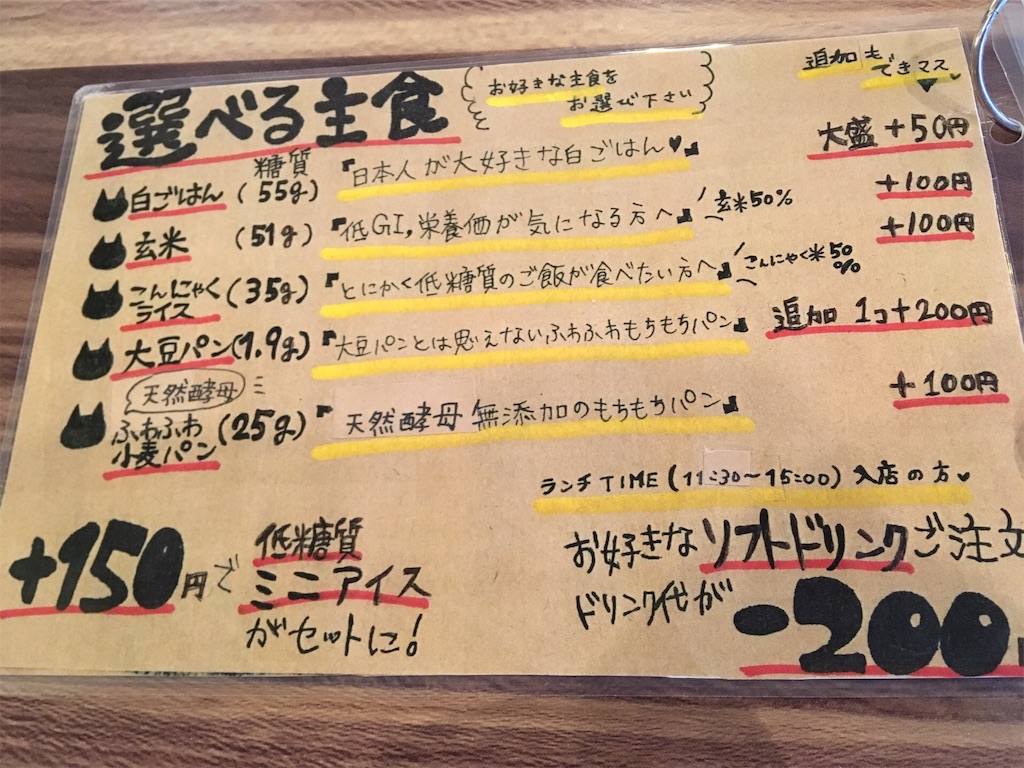 選べる主食
お好きな主食を
お選び下さい
追加も
できマス
糖質
白ごはん (55g) 『日本人が大好きな白ごはん♥』 大盛 +50円
玄米 (51g) 『低GI,栄養価が気になる方へ』 玄米50% +100円
こんにゃく
ライス (35g) 『とにかく低糖質のご飯が食べたい方へ』 こんにゃく米50
% +100円
大豆パン (1.9g) 『大豆パンとは思えないふわふわもちもちパン』 追加 1コ+200円
天然酵母
ふわふわ
小麦パン (25g) 『天然酵母 無添加のもちもちパン』 +100円
ランチTIME (11:30～15:00) 入店の方♥
+150円で
低糖質
ミニアイス
がセットに!
お好きなソフトドリンクご注文
ドリンク代が
-200